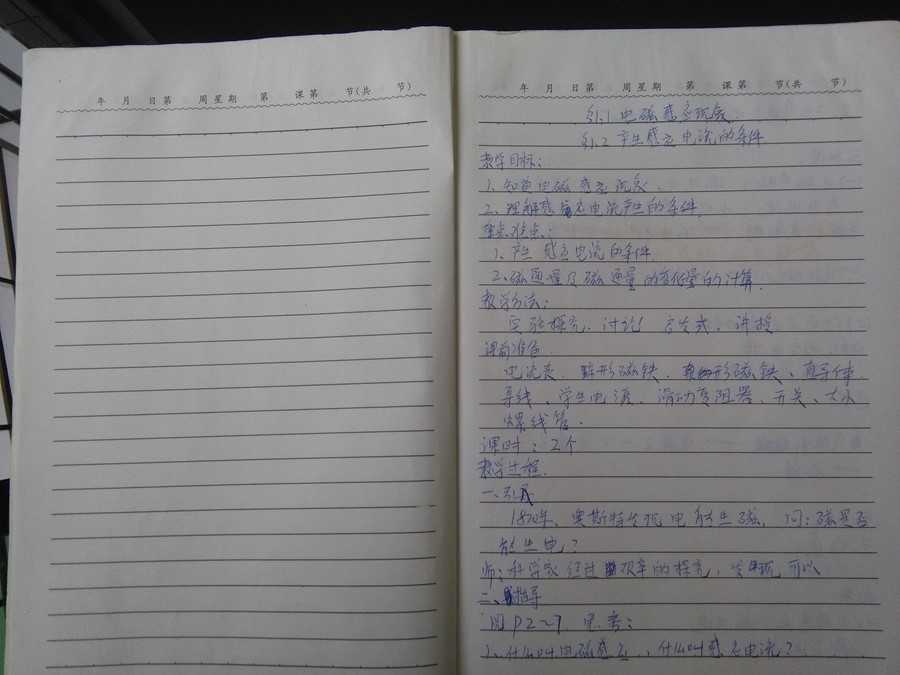 年 月 日第 周星期 第 课第 节(共 节)
年 月 日第 周星期 第 课第 节(共 节)
§1.1 电磁感应现象
§1.2 产生感应电流的条件
教学目标:
1、知道电磁感应现象、
2、理解感应电流产生的条件
重点难点:
1、产生感应电流的条件
2、磁通量及磁通量的变化量的计算.
教学方法:
实验探究、讨论 方式、讲授
课前准备
电流表、蹄形磁铁、条形磁铁、直导体
导线、学生电源、滑动变阻器、开关、大小
螺线管.
课时: 2个
教学过程.
一、引入
1820年、奥斯特发现电能生磁, 问: 磁是否
能生电?
师: 科学家经过 艰辛的探究, 发现可以
二、指导
阅P2~7 思考:
1、什么叫电磁感应、, 什么叫感应电流?